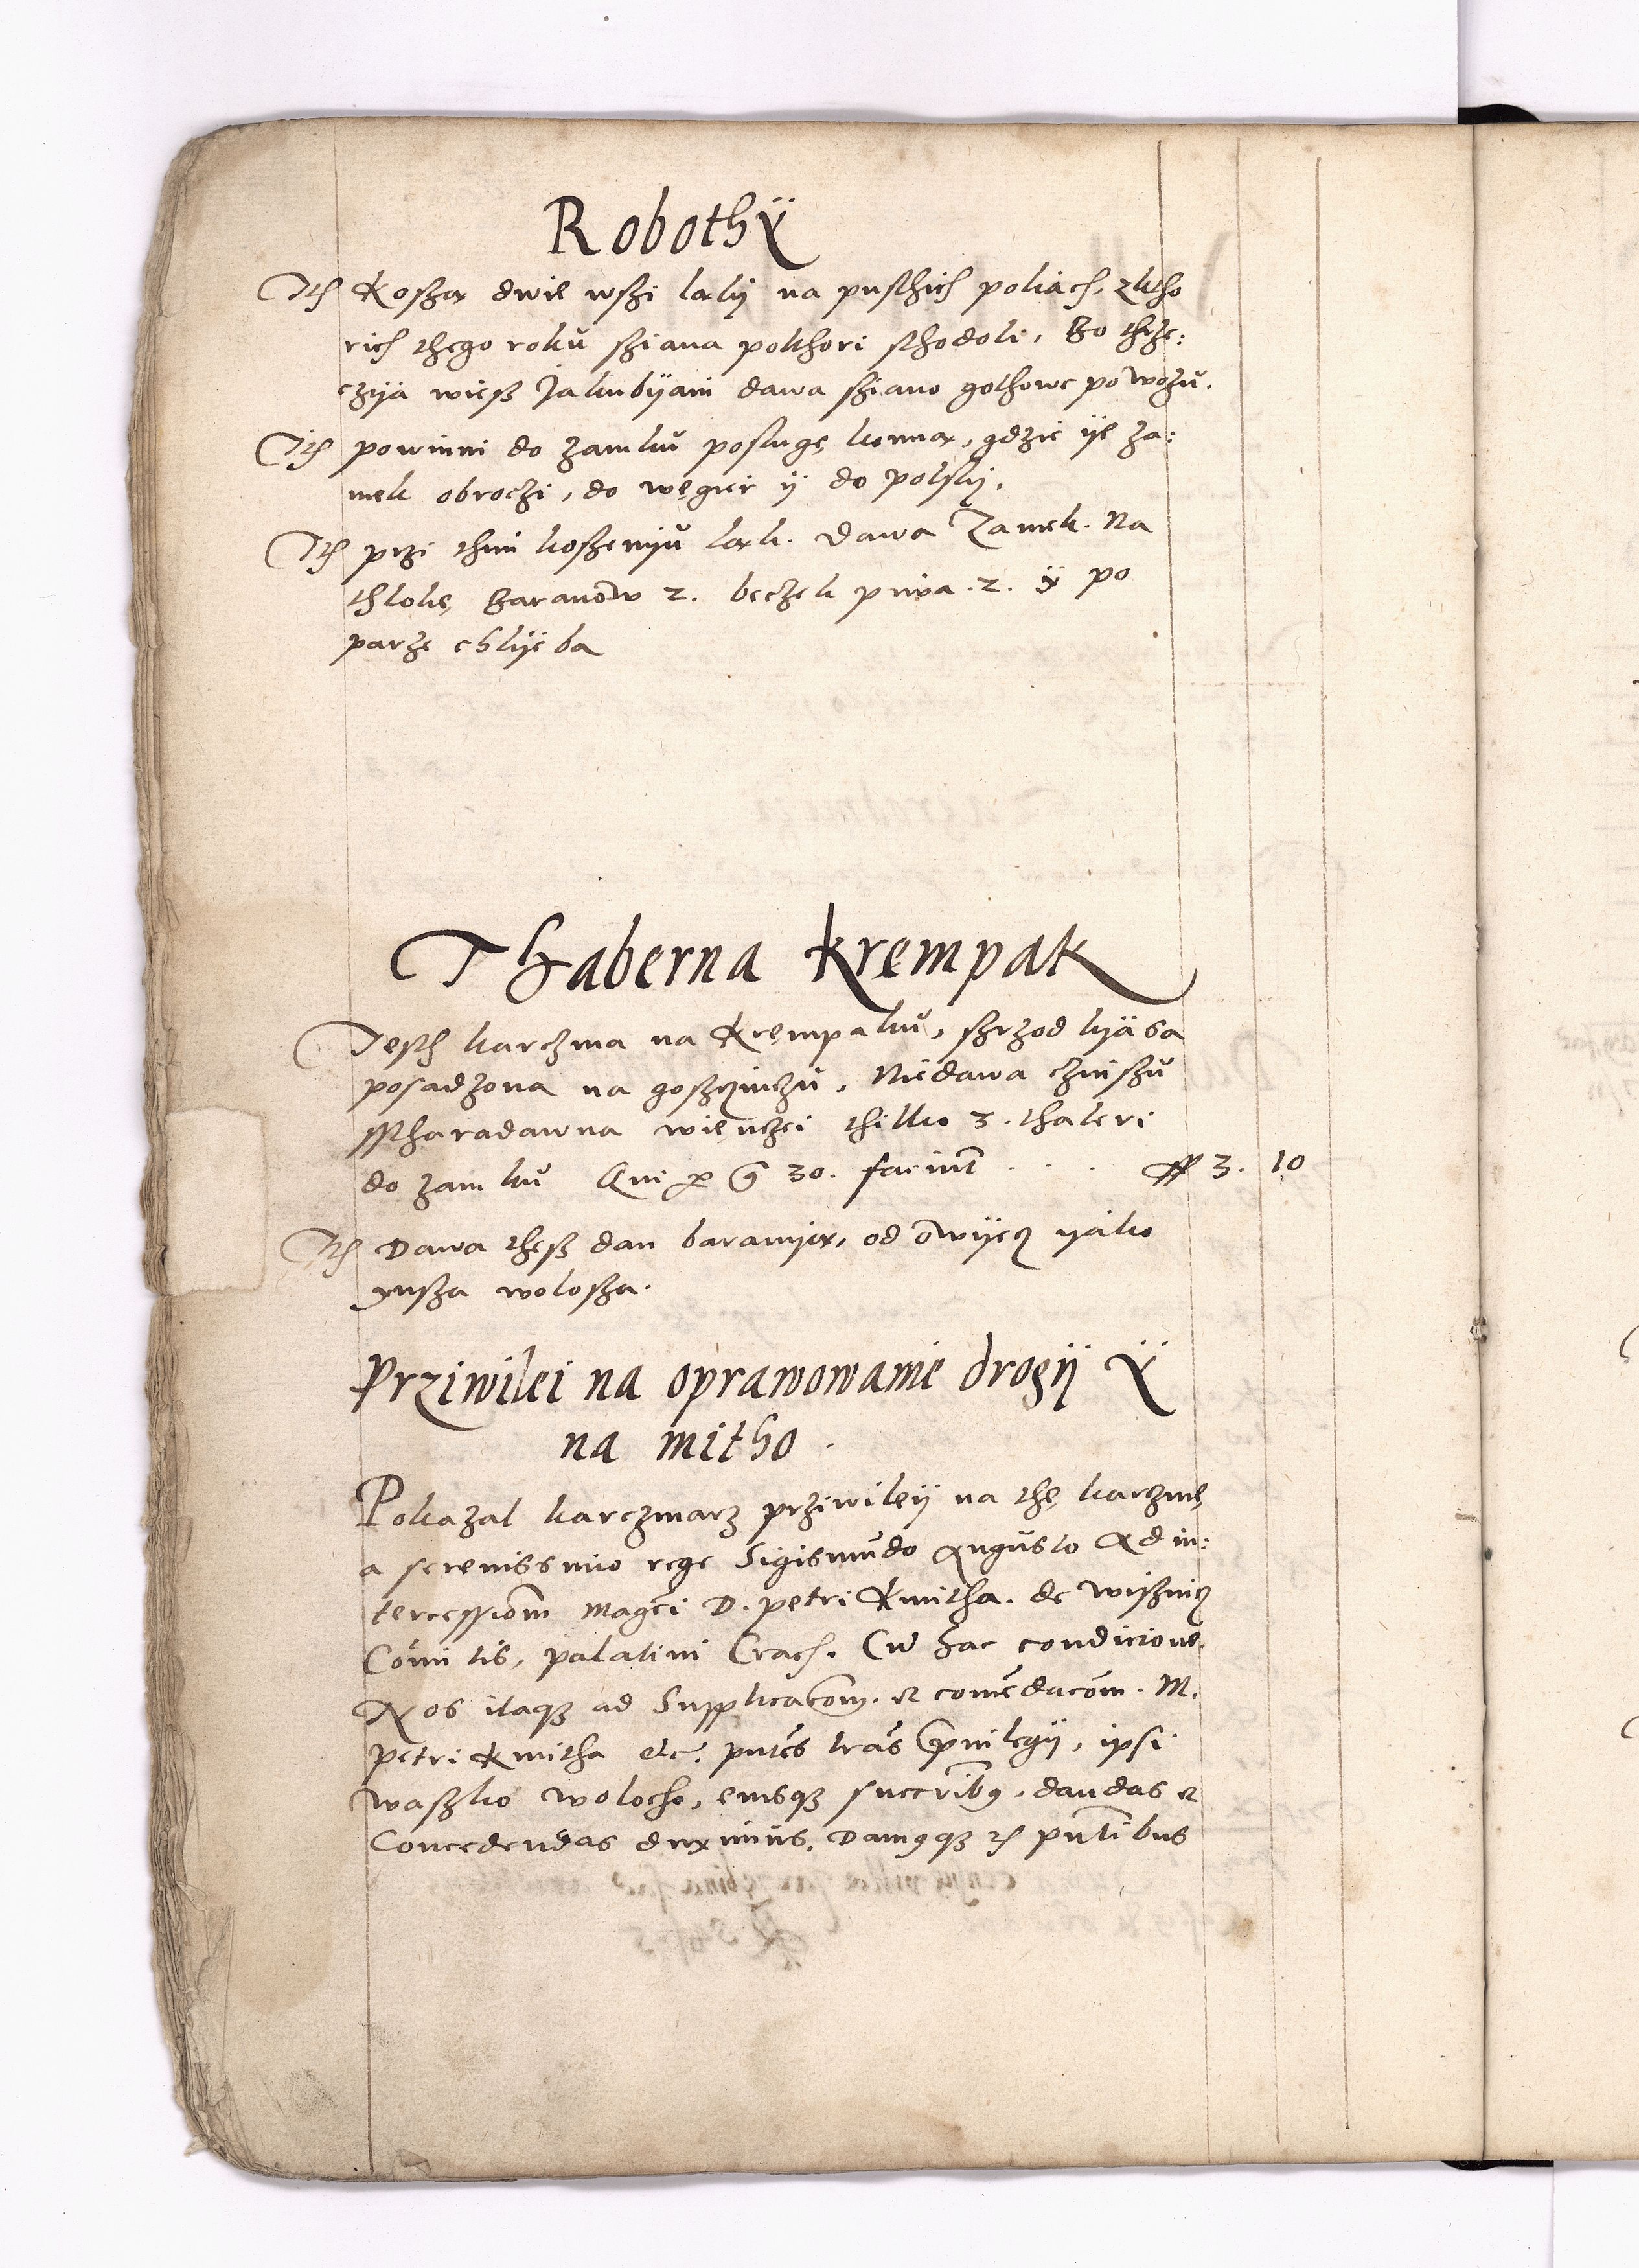 Robothÿ
Ith Koszą dwie wszi ląkij na pusthich poliach, zktho
rich thego roku sziana polthori sthodoli, Bo thrze:
czija wiesz Jakubÿani dawa sziano gothowe powozu.
Ith powinni do zamku poslugę konną, gdzie ÿe za:
mek obroczi, do węgier ÿ do polskij.
Ith przi thim koszeniju ląk. Dawa Zamek. Na
thlokę Baranow 2. beczek piwa .2. ÿ po
parze chlijeba
Thaberna Krempak
Jesth karczma na Krempaku, szrzod lijasa
posadzona na goszczinczu, Niedawa czinszu
stharadawna wienczei thilko 3. thaleri
do zamku Qui per gr 30. faciunt . . . ff 3. 10
Ith Dawa thesz dan baraniją, od owijecz ÿako
ynsza wolosza.
Prziwilei na oprawowanie drogij ÿ
na mitho.
Pokazal karczmarz prziwileÿ na thę karczmę
a serenissimo rege Sigismudo Augusto Ad in:
tercessiom Magci D. petri Kmitha. de Wisznicz
Comitis, palatini Crach. Cu hac condicione.
Nos itaqz ad Supplicacom. et comedacom. M.
petri Kmitha etc. pntes lras privilegij, ipsi
Waszko Wolocho, eiusqz succribus, dandas et
Concedendas duximus, Damusqz pntibus